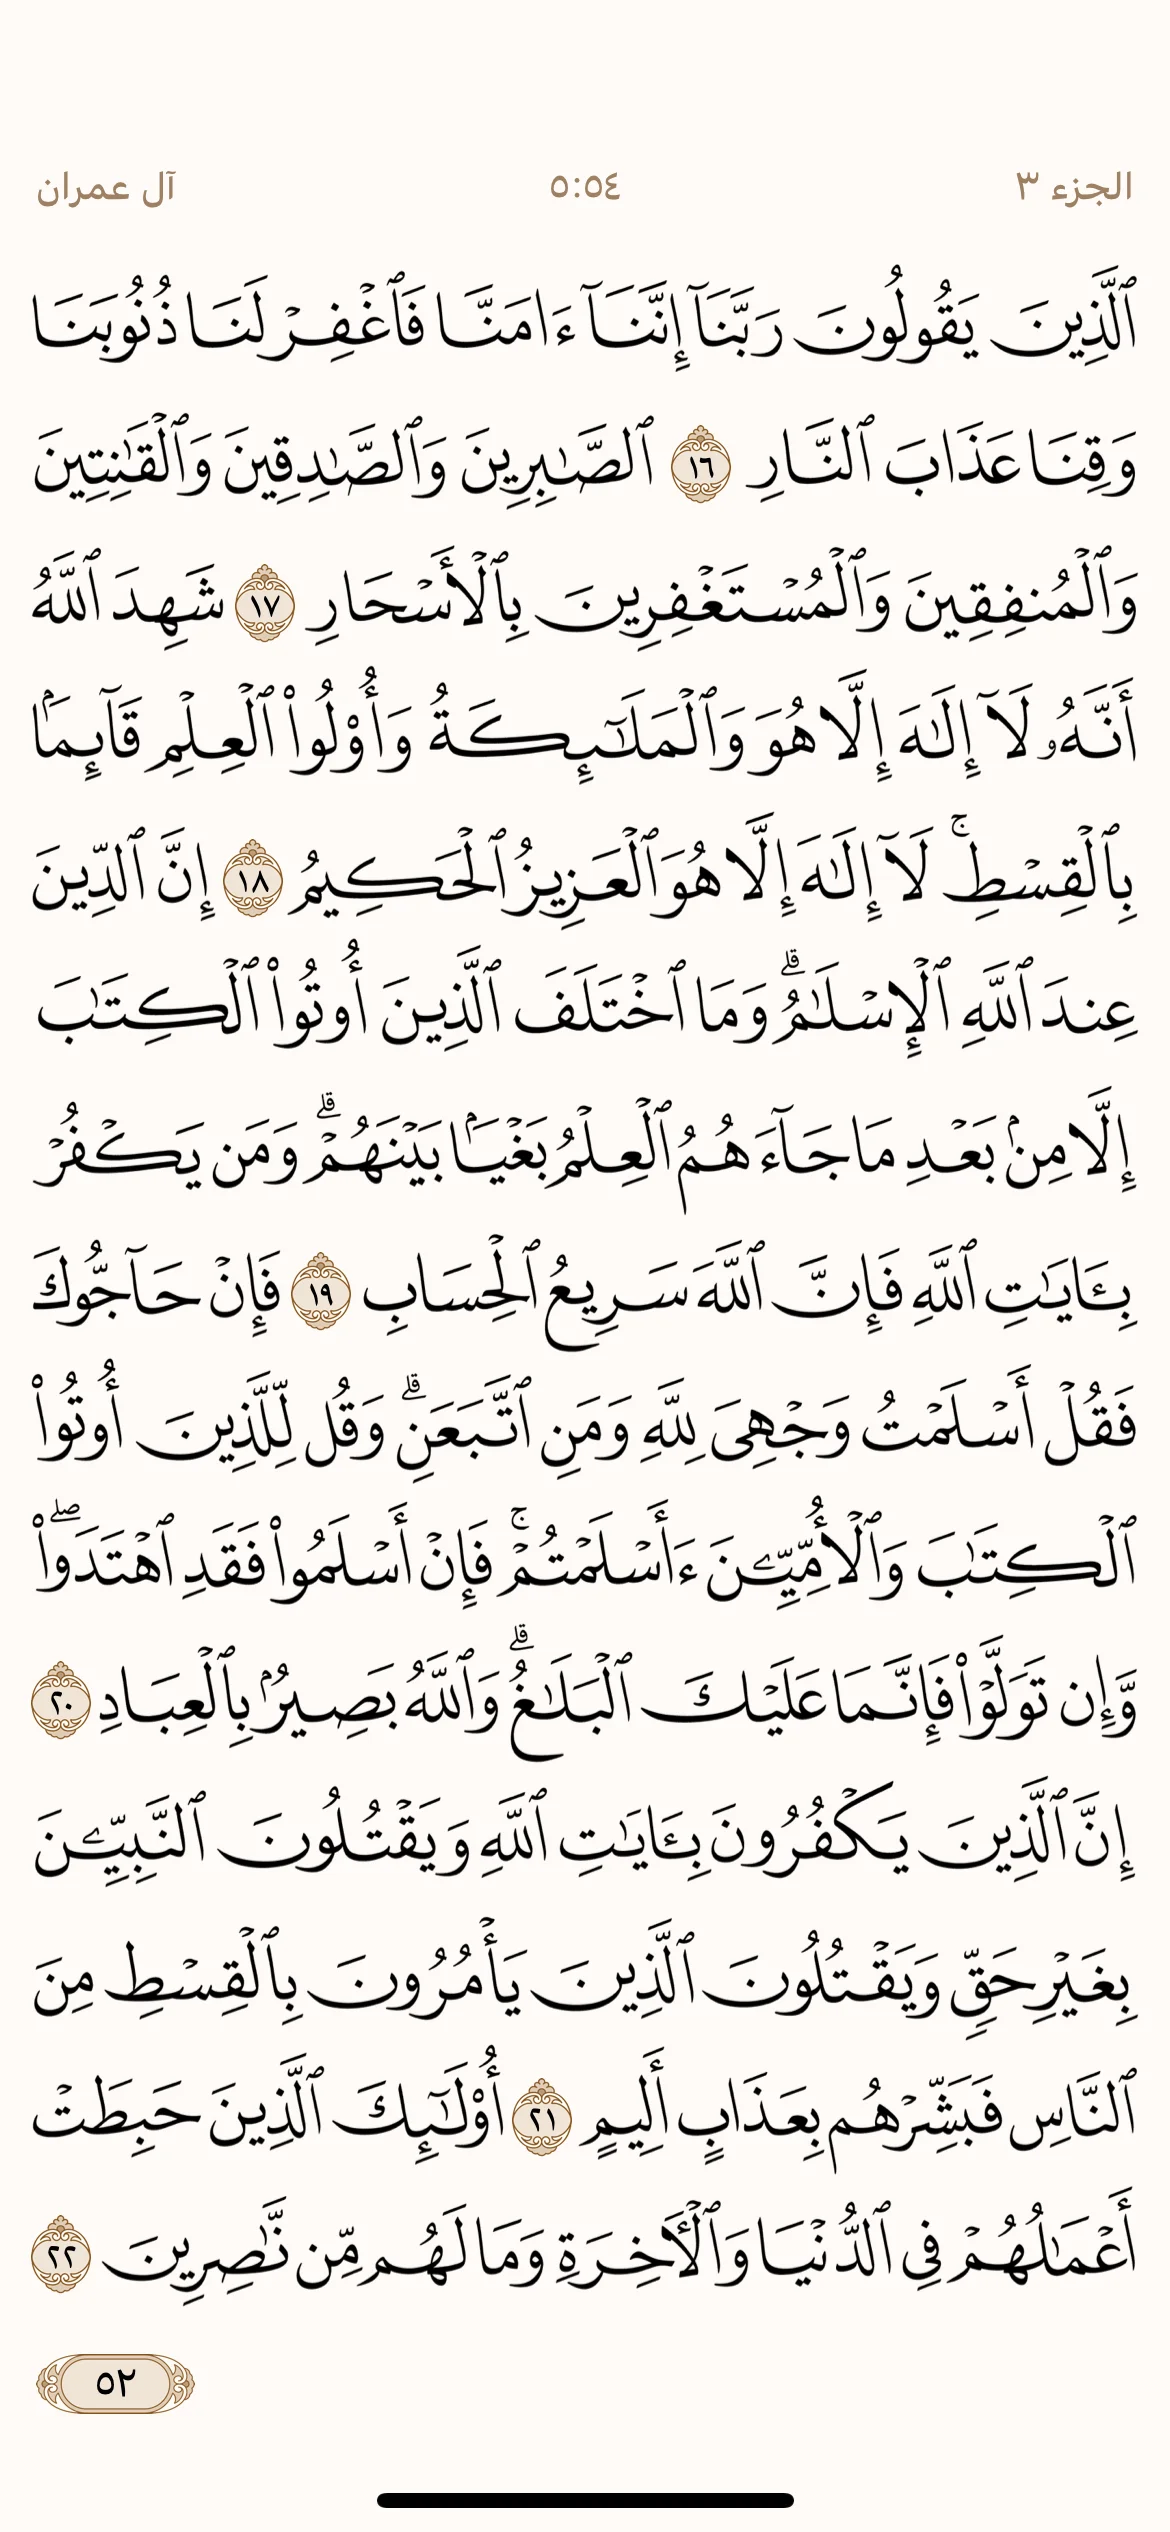 الجزء ٣
٥:٥٤
آل عمران
ٱلَّذِينَ يَقُولُونَ رَبَّنَآ إِنَّنَآ ءَامَنَّا فَٱغْفِرْ لَنَا ذُنُوبَنَا
وَقِنَا عَذَابَ ٱلنَّارِ ١٦ ٱلصَّٰبِرِينَ وَٱلصَّٰدِقِينَ وَٱلْقَٰنِتِينَ
وَٱلْمُنفِقِينَ وَٱلْمُسْتَغْفِرِينَ بِٱلْأَسْحَارِ ١٧ شَهِدَ ٱللَّهُ
أَنَّهُۥ لَآ إِلَٰهَ إِلَّا هُوَ وَٱلْمَلَٰٓئِكَةُ وَأُو۟لُوا۟ ٱلْعِلْمِ قَآئِمَۢا
بِٱلْقِسْطِ ۚ لَآ إِلَٰهَ إِلَّا هُوَ ٱلْعَزِيزُ ٱلْحَكِيمُ ١٨ إِنَّ ٱلدِّينَ
عِندَ ٱللَّهِ ٱلْإِسْلَٰمُ ۗ وَمَا ٱخْتَلَفَ ٱلَّذِينَ أُوتُوا۟ ٱلْكِتَٰبَ
إِلَّا مِنۢ بَعْدِ مَا جَآءَهُمُ ٱلْعِلْمُ بَغْيَۢا بَيْنَهُمْ ۗ وَمَن يَكْفُرْ
بِـَٔايَٰتِ ٱللَّهِ فَإِنَّ ٱللَّهَ سَرِيعُ ٱلْحِسَابِ ١٩ فَإِنْ حَآجُّوكَ
فَقُلْ أَسْلَمْتُ وَجْهِىَ لِلَّهِ وَمَنِ ٱتَّبَعَنِ ۗ وَقُل لِّلَّذِينَ أُوتُوا۟
ٱلْكِتَٰبَ وَٱلْأُمِّيِّـۧنَ ءَأَسْلَمْتُمْ ۚ فَإِنْ أَسْلَمُوا۟ فَقَدِ ٱهْتَدَوا۟ ۖ
وَّإِن تَوَلَّوْا۟ فَإِنَّمَا عَلَيْكَ ٱلْبَلَٰغُ ۗ وَٱللَّهُ بَصِيرُۢ بِٱلْعِبَادِ ٢٠
إِنَّ ٱلَّذِينَ يَكْفُرُونَ بِـَٔايَٰتِ ٱللَّهِ وَيَقْتُلُونَ ٱلنَّبِيِّـۧنَ
بِغَيْرِ حَقٍّ وَيَقْتُلُونَ ٱلَّذِينَ يَأْمُرُونَ بِٱلْقِسْطِ مِنَ
ٱلنَّاسِ فَبَشِّرْهُم بِعَذَابٍ أَلِيمٍ ٢١ أُو۟لَٰٓئِكَ ٱلَّذِينَ حَبِطَتْ
أَعْمَٰلُهُمْ فِى ٱلدُّنْيَا وَٱلْـَٔاخِرَةِ وَمَا لَهُم مِّن نَّٰصِرِينَ ٢٢
٥٢